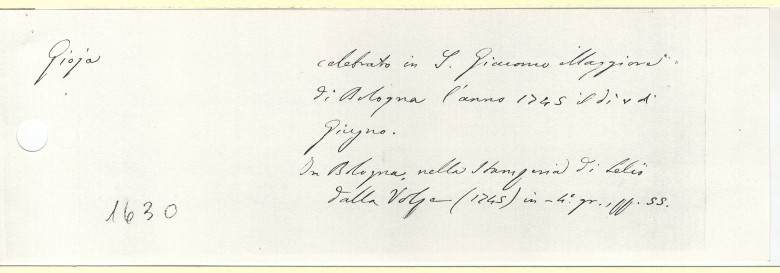 Gioja
celebrato in S. Giacomo Maggiore
di Bologna l'anno 1745 il di v di
Giugno.
In Bologna, nella Stamperia di Lelio
dalla Volpe (1745) in-4°. gr., pp. 55.
1630